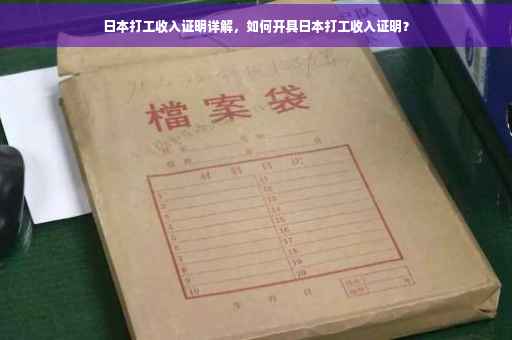 日本打工收入证明详解，如何开具日本打工收入证明？
檔案袋
材料目次
1 11
2 12
3 13
4 14
5 15
6 16
7 17
8 18
9 19
10 20
年 月 日